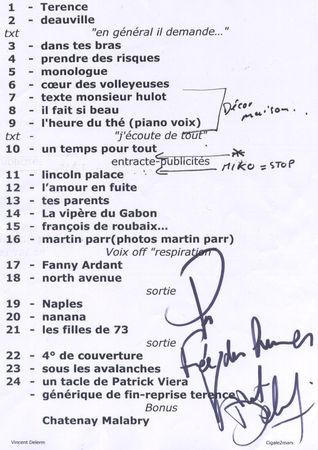 1 - Terence
2 - deauville
txt "en général il demande..."
3 - dans tes bras
4 - prendre des risques
5 - monologue
6 - cœur des volleyeuses
7 - texte monsieur hulot
8 - il fait si beau
9 - l'heure du thé (piano voix)
Décor maison.
txt - "j'écoute de tout"
10 - un temps pour tout
entracte-publicités
MIKO = STOP
11 - lincoln palace
12 - l'amour en fuite
13 - tes parents
14 - La vipère du Gabon
15 - françois de roubaix...
16 - martin parr(photos martin parr)
Voix off "respiration
17 - Fanny Ardant
18 - north avenue
sortie
19 - Naples
20 - nanana
21 - les filles de 73
sortie
22 - 4° de couverture
23 - sous les avalanches
24 - un tacle de Patrick Viera
- générique de fin-reprise terence
Bonus
Chatenay Malabry
Vincent Delerm
Cigale2mars